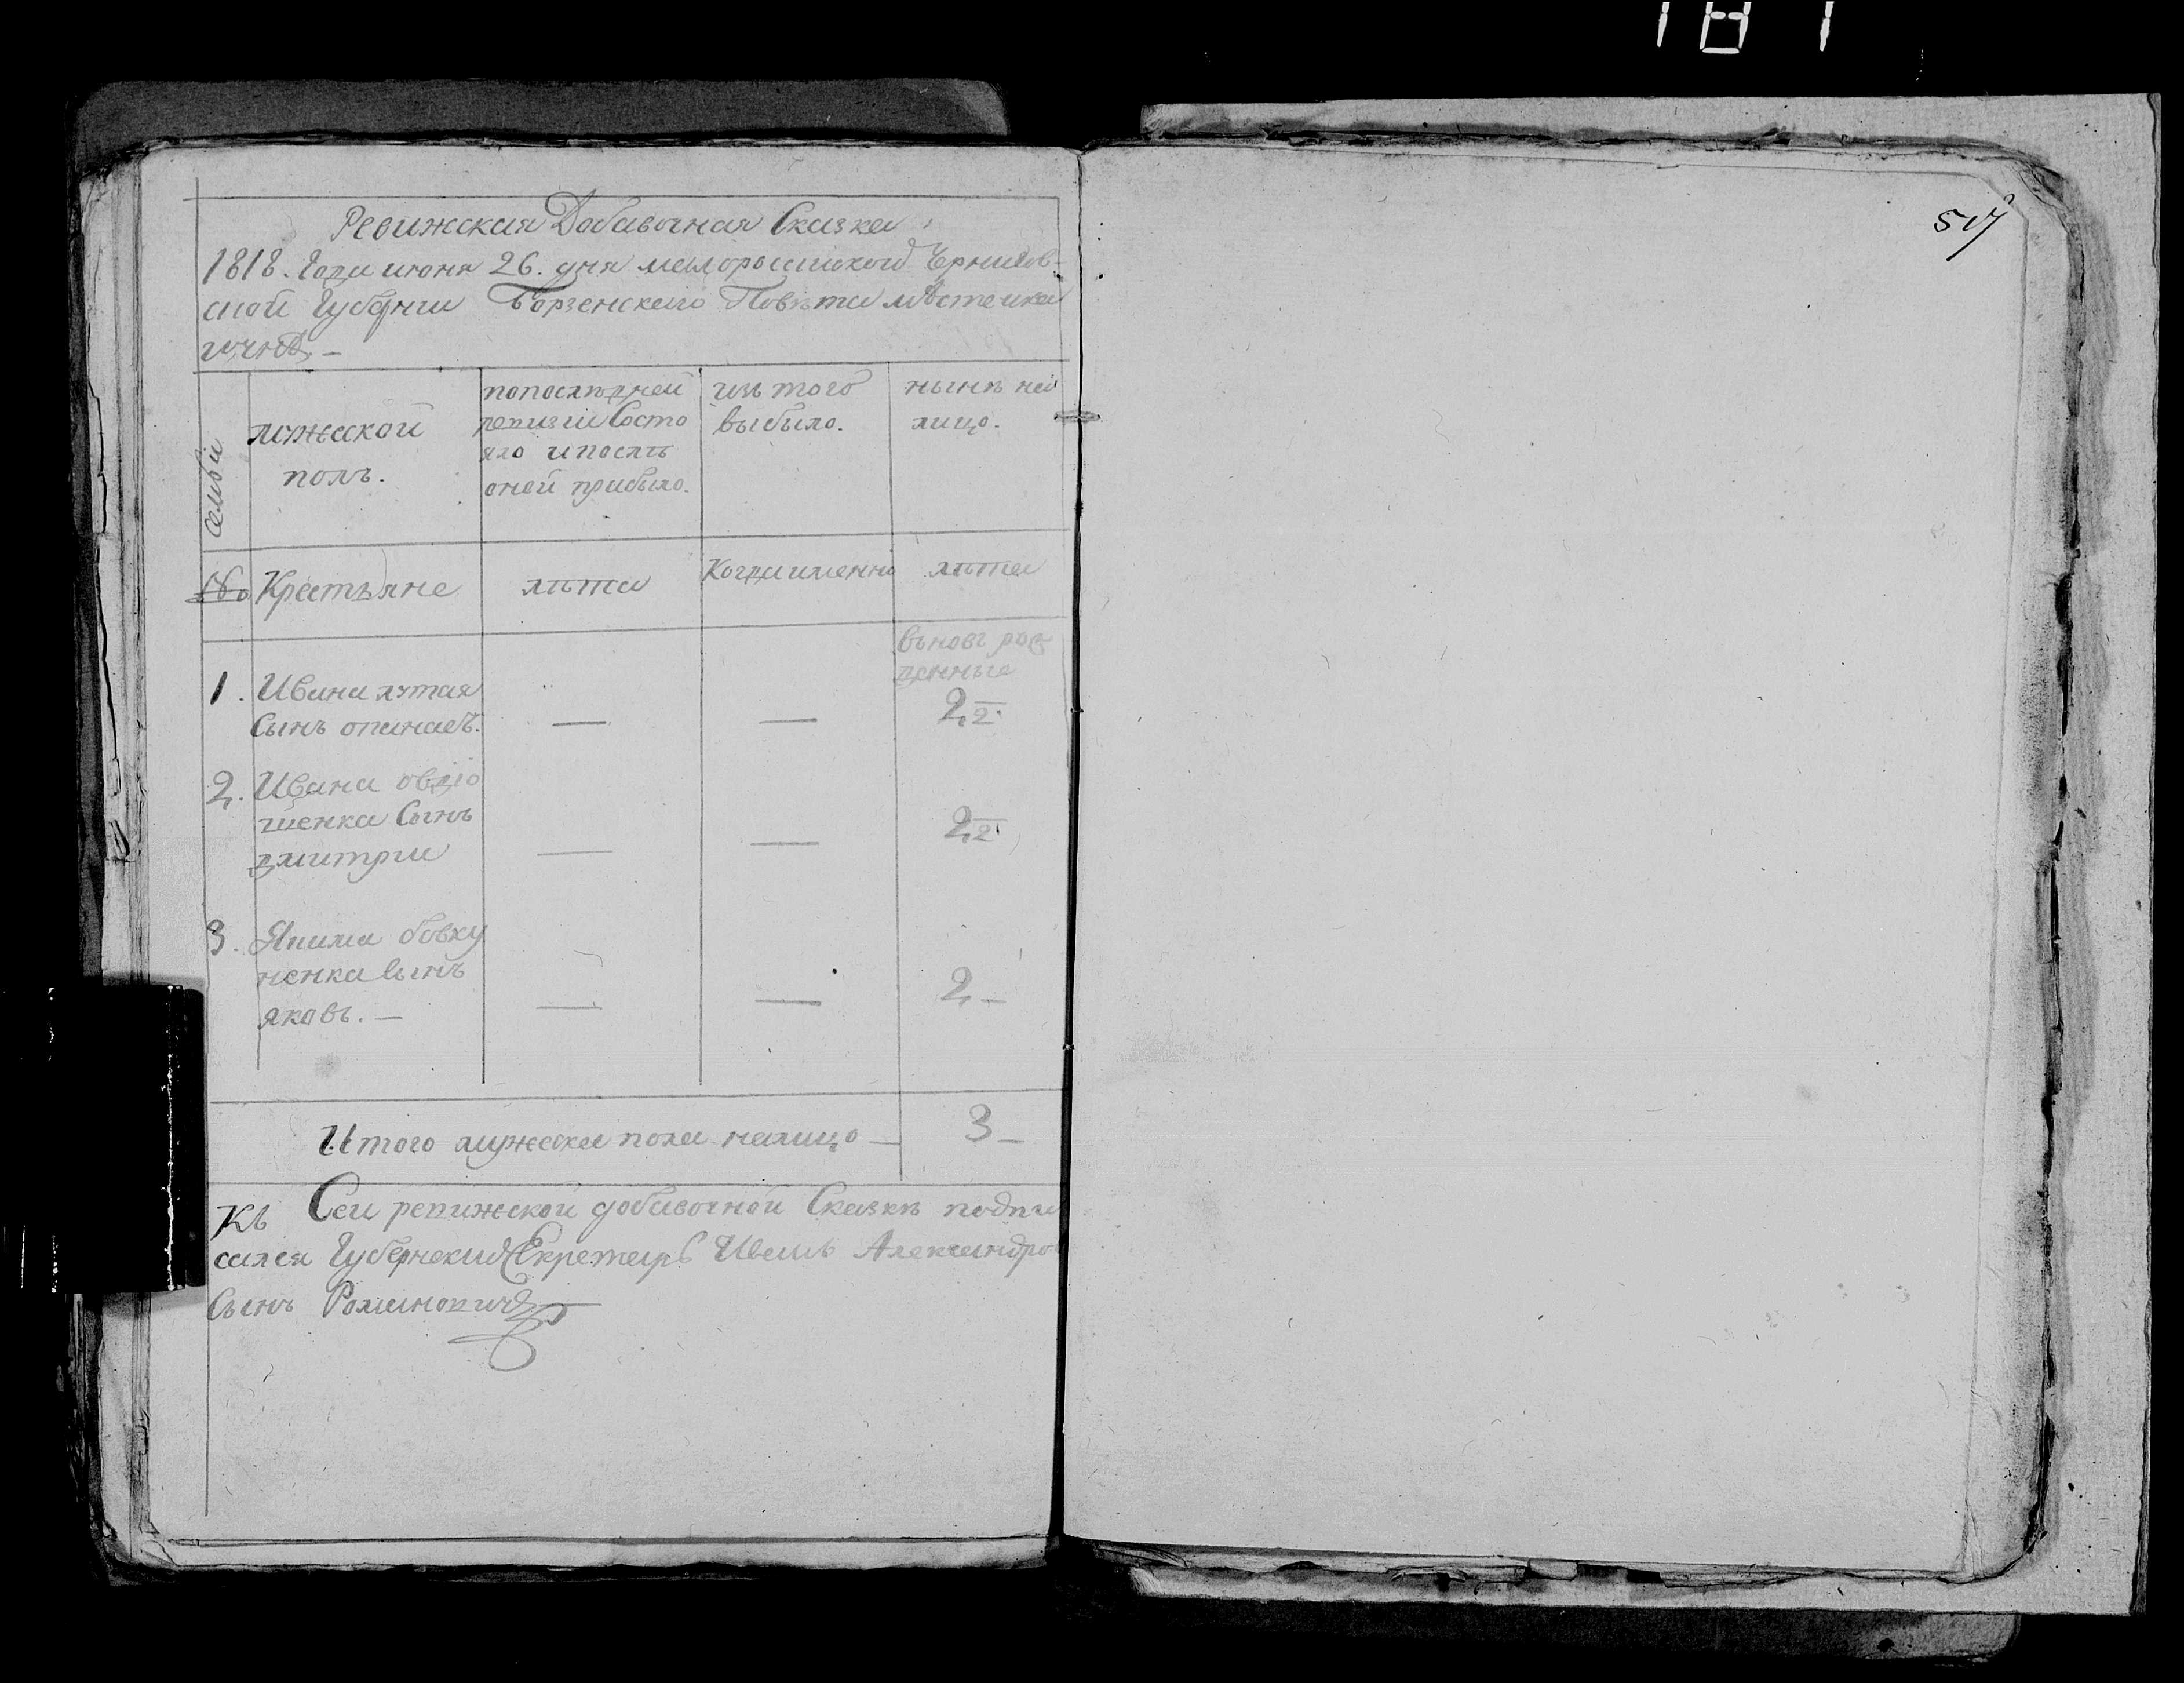 181
517
Ревижская Добавочная Сказка
1818. Года июня 26. дня малороссииской Чернигов-
ской Губернии Борзенскаго Повѣта мѣстечка
ичнѣ —
семьи
мужеской
полъ.
попослѣдней
ревизии Состо
яло ипослѣ
оней прибыло.
изъ того
выбыло.
нынѣ на
лицо.
№ Крестьяне
лѣта
Когдаименно
лѣта
вѣновъ рож
денные
1. Ивана лутая
Сынъ опанасъ.
— — 2
2. Ивана овдіо
шенка Сынъ
дмитрии
— — 2
3. Якима бовку
ненка Сынъ
яковъ. —
— — 2 —
Итого мужеска пола налицо — 3 —
Къ Сеи ревижской добавочной Сказкѣ подпи
сался Губернский Секретарь Иванъ Александро
Сынъ Романовичъ